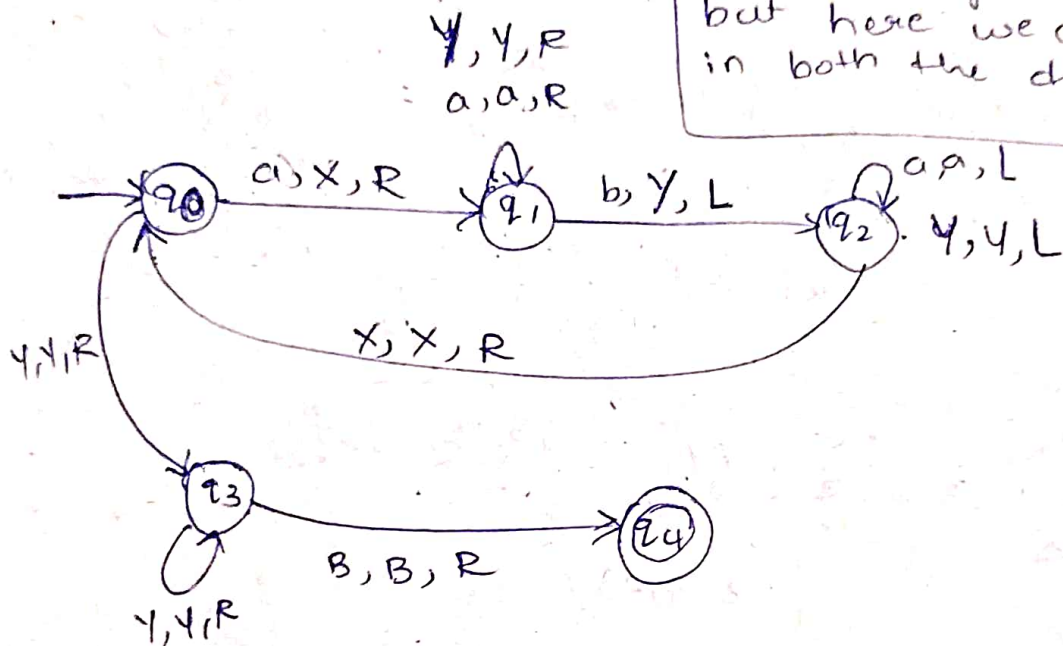 but here we
in both the d
Y, Y, R
a, a, R
q0
a, X, R
q1
b, Y, L
q2
a a, L
Y, Y, L
X, X, R
Y, Y, R
q3
B, B, R
q4
Y, Y, R